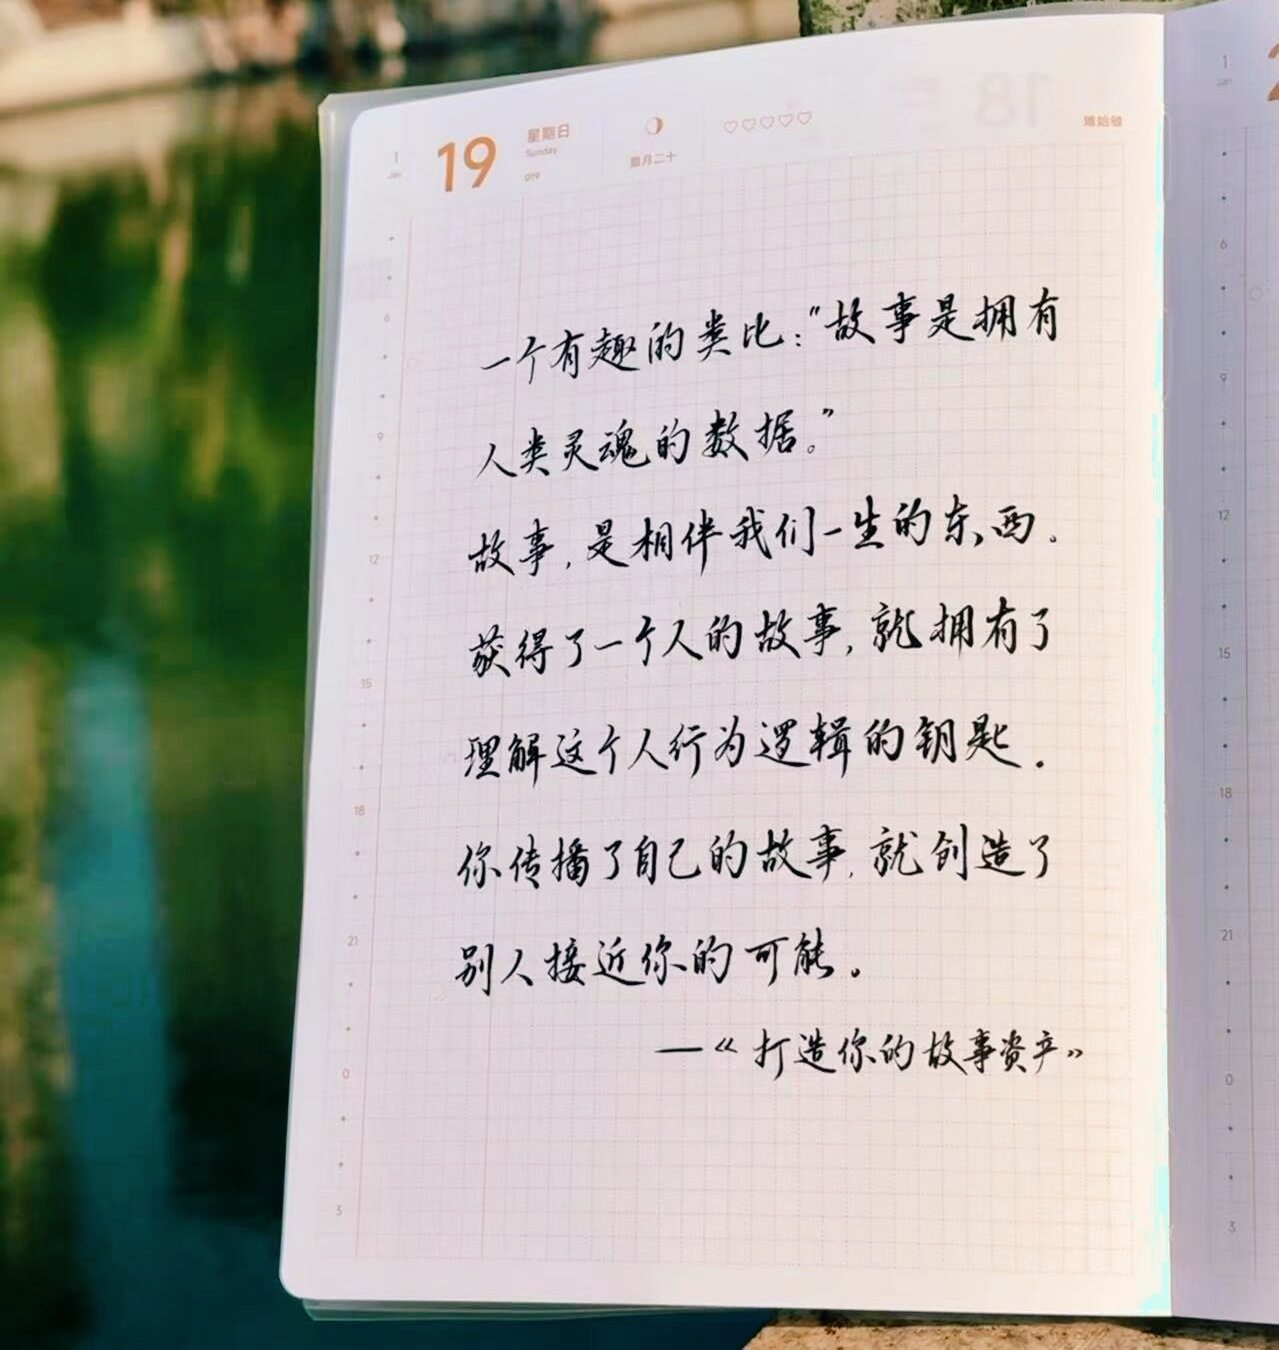 1
Jan
19
星期日
Sunday
019
腊月二十
♡♡♡♡♡
18
一个有趣的类比："故事是拥有
人类灵魂的数据。"
故事，是相伴我们一生的东西。
获得了一个人的故事，就拥有了
理解这个人行为逻辑的钥匙.
你传播了自己的故事，就创造了
别人接近你的可能。
—《打造你的故事资产》
6
9
12
15
18
21
0
3
1
Jan
2
6
9
12
15
18
21
0
3